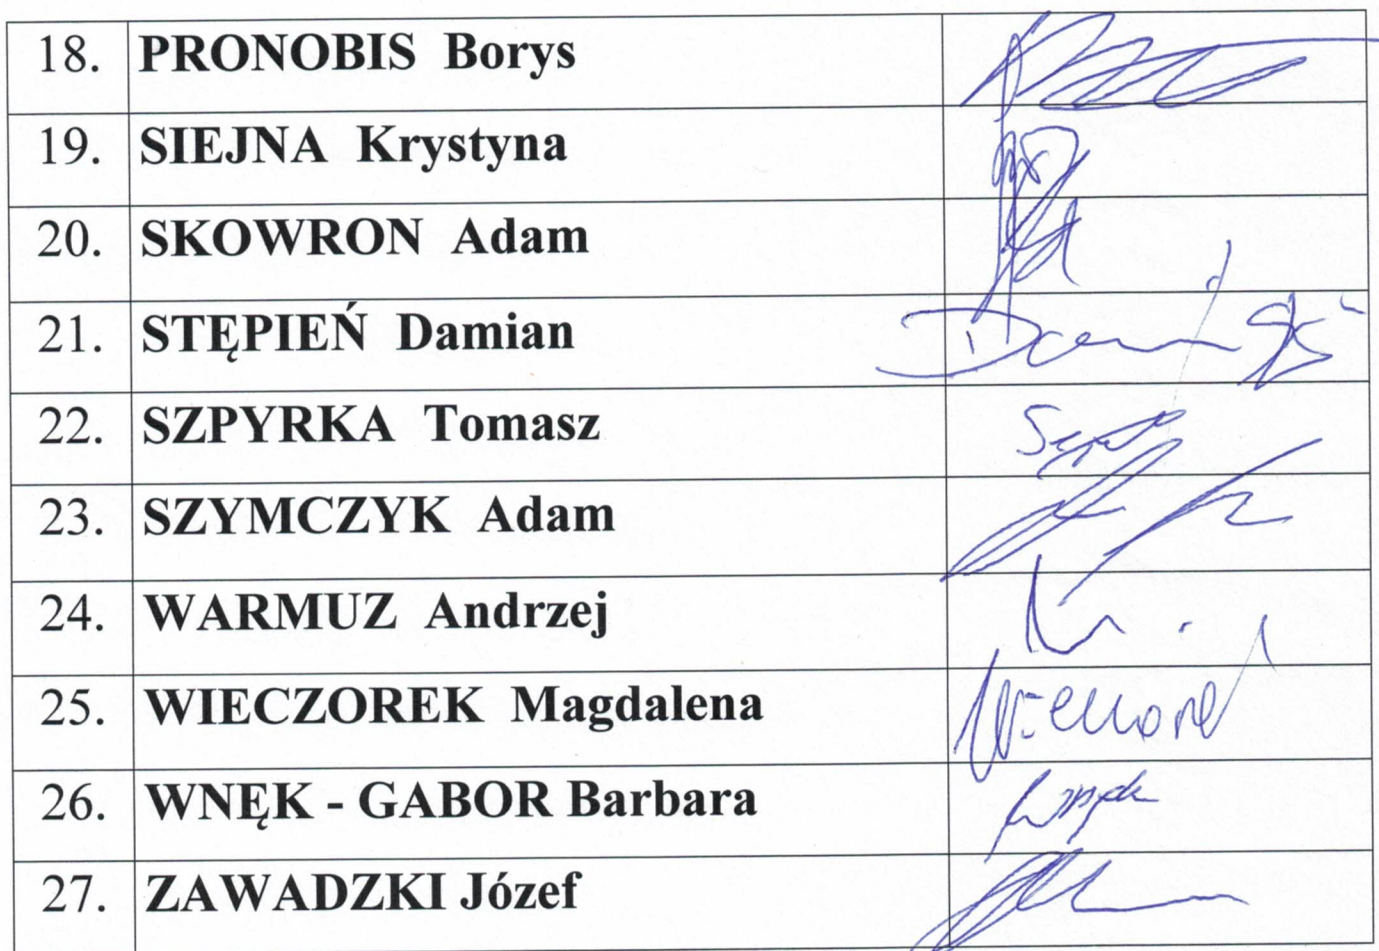 18. PRONOBIS Borys
19. SIEJNA Krystyna
20. SKOWRON Adam
21. STĘPIEŃ Damian
22. SZPYRKA Tomasz
23. SZYMCZYK Adam
24. WARMUZ Andrzej
25. WIECZOREK Magdalena
26. WNĘK - GABOR Barbara
27. ZAWADZKI Józef